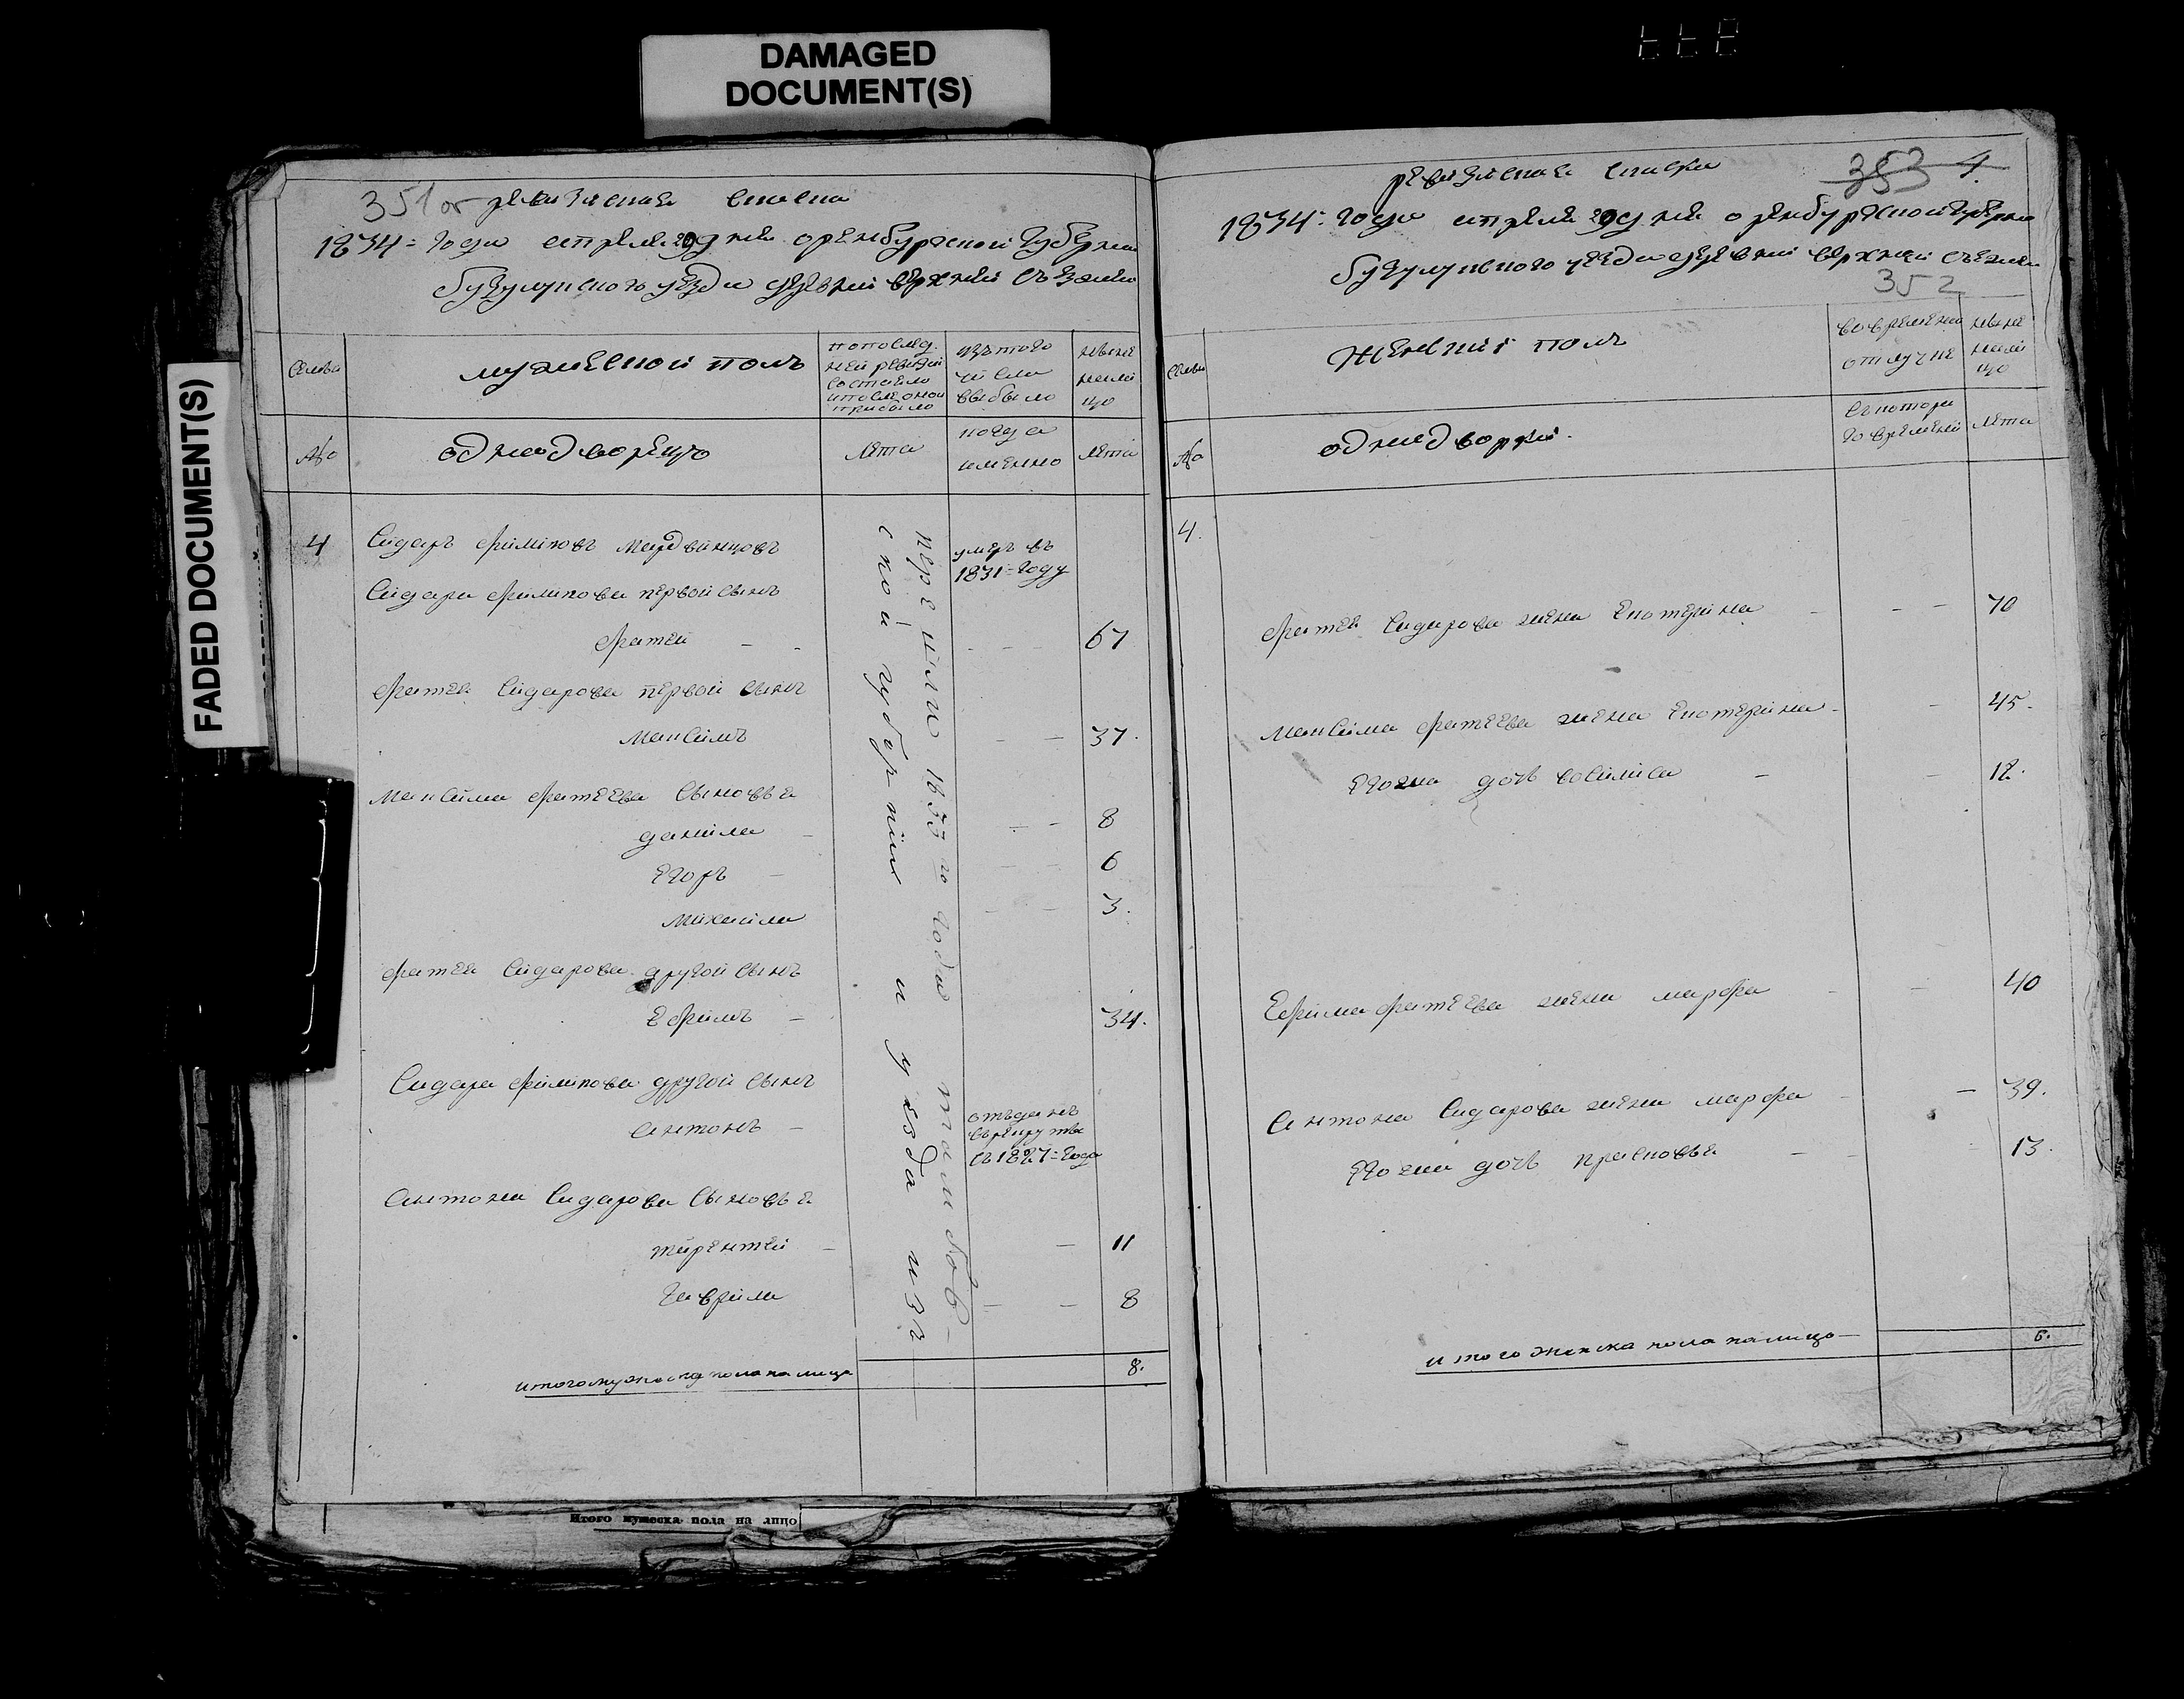 DAMAGED
DOCUMENT(S)
FADED DOCUMENT(S)
351 об ревизская скаска
1834= Года апреля 29 дня оренбургской Губернии
бузулунского уезда деревни верхней съезжей
семьи
мужеской полъ
по послед.
ней ревизии
состояло
и после оной
прибыло
изъ того
числа
выбыло
ныне
нали
цо
№
однодворцо
лета
когда
именно
лета
4
Сидаръ филиповъ мардвинцовъ
умеръ въ
1831= Году
Сидара филипова первой сынъ
фатей - - 67
фатея Сидарова первой сынъ
максимъ - - 37.
максима фатеева сыновья
данила - - 8
Егоръ - - 6
михаила - - 3.
фатея Сидарова другой сынъ
Ефимъ - 34.
Сидара филипова другой сынъ
антонъ -
отъданъ
въ рекруты
съ 1827= Года
антона Сидарова сыновья
тирентей - - 11
Гаврила - - 8
итого мужеска пола на лицо 8.
перешли 1833 го года тамбов-
ской губернии и уезда изъ
Итого мужеска пола на лицо
ревизская скаска
353 4.
1834= Года апреля 29 дня оренбургской губернии
бузулунского уезда деревни верхней съезжей
352
семьи
Женский полъ
во временной
отлучке
ныне
нали
цо
№
однодворки.
съ котора
го времени
лета
4.
фатея Сидарова жена Екотерина - - - 70
максима фатеева жена Екотерина - - 45.
Егожа дочь василиса - - 12.
Ефима фатеева жена марфа - - 40
антона Сидарова жена марфа - - 39.
Егожа дочь прасковья - - 13.
итого женска пола на лицо 6.